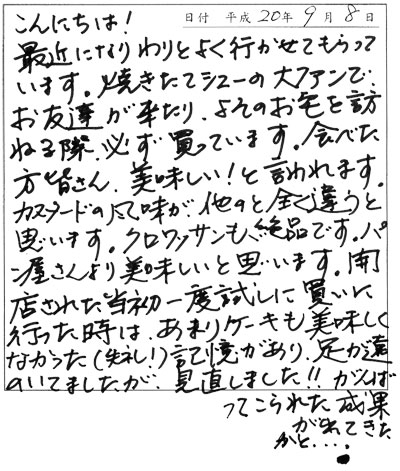 こんにちは!
日付 平成20年9月8日
最近になりわりとよく行かせてもらって
います。焼きたてシューの大ファンで、
お友達が来たり、よそのお宅を訪
ねる際、必ず買っています。食べた
方皆さん、美味しい!と言われます。
カスタードの風味が、他のと全く違うと
思います。クロワッサンも、絶品です。パ
ン屋さんより美味しいと思います。開
店された当初一度試しに買いに
行った時は、あまりケーキも美味しく
なかった(失礼!)記憶があり、足が遠
のいてましたが、見直しました!!がんば
ってこられた成果
が出てきた
かと....